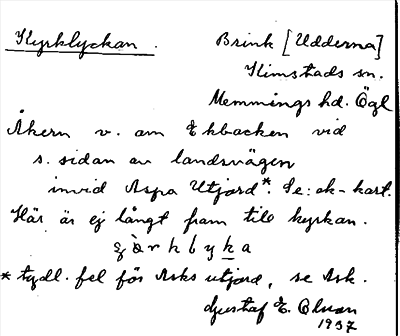 Kyrklyckan. Brink [Udderna]
Kimstads sn.
Memmings hd. Ögl
Åkern v. om Ekbacken vid
s. sidan av landsvägen
invid Aspa Utjord*. Se: ek-kart.
Här är ej långt fram till kyrkan.
* tydl. fel för Asks utjord, se Ask.
Gustaf E. Olson
1937